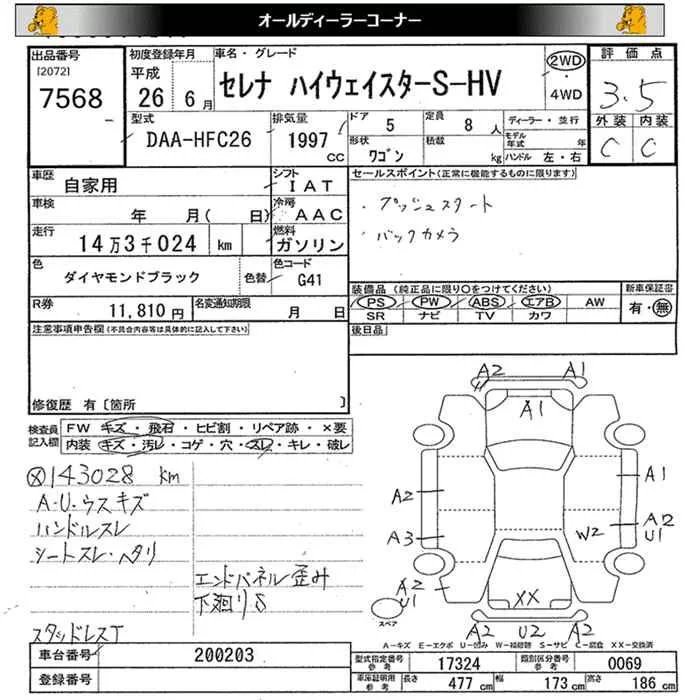 オールディーラーコーナー
出品番号 [2072] 7568
初度登録年月 平成 26年 6月
車名・グレード セレナ ハイウェイスターS-HV
2WD ・ 4WD
評価点 3.5
外装 C 内装 C
型式 DAA-HFC26
排気量 1997 CC
ドア 5 定員 8 人
形状 ワゴン 積載 kg
ディーラー・並行
モデル年式 年
ハンドル 左・右
車歴 自家用
シフト IAT
車検 年 月( 日)
冷房 AAC
走行 14万3千024 km
燃料 ガソリン
色 ダイヤモンドブラック 色替
色コード G41
R券 11,810円
名変通知期限 月 日
セールスポイント(正常に機能するものに限ります)
・プッシュスタート
・バックカメラ
装備品 (純正品に限り○をつけてください)
PS PW ABS エアB AW
SR ナビ TV カワ
新車保証書 有・無
後日品
注意事項申告欄(不具合内容等は具体的に記入して下さい)
修復歴 有 [箇所 ]
検査員記入欄
FW キズ・飛石・ヒビ割・リペア跡・×要
内装 キズ・汚レ・コゲ・穴・スレ・キレ・破レ
143028 km
A・U・ウスキズ
ハンドルスレ
シートスレ・ヘタリ
エンドパネル歪み
下廻りS
スタッドレスT
A2 A1
A1
A2 A1
A3 W2 A2 U1
A2 U1
XX
スペア
A2 U2 A2
A-キズ E-エクボ U-凹み W-補修跡 S-サビ C-腐食 XX-交換済
車台番号 200203
登録番号
型式指定番号 参考 17324
類別区分番号 参考 0069
車庫証明用 参考 長さ 477 cm 幅 173 cm 高さ 186 cm